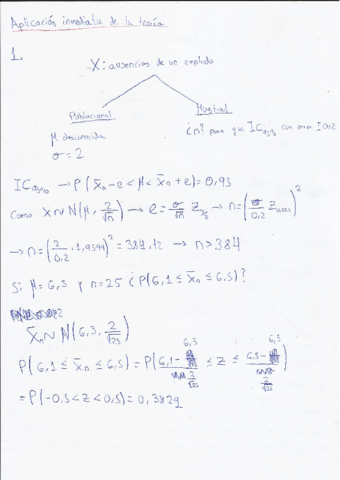 Aplicación inmediata de la teoría
1.
X: ausencias de un empleado
Poblacional
Muestral
μ desconocida
σ = 2
¿n? para que IC95% con error
IC95% → P(x̄n - e < μ < x̄n + e) = 0,95
Como X ~ N(μ, 2/√n) → e = σ/√n Zα/2 → n = (σ/0,2 Z0,025)²
→ n = (2/0,2 · 1,9599)² = 384,12 → n > 384
Si μ = 6,3 y n = 25 ¿P(6,1 ≤ x̄n ≤ 6,5)?
x̄n ~ N(6,3, 2/√25)
P(6,1 ≤ x̄n ≤ 6,5) = P((6,1 - 6,3)/(2/√25) ≤ Z ≤ (6,5 - 6,3)/(2/√25))
= P(-0,5 < Z < 0,5) = 0,3829